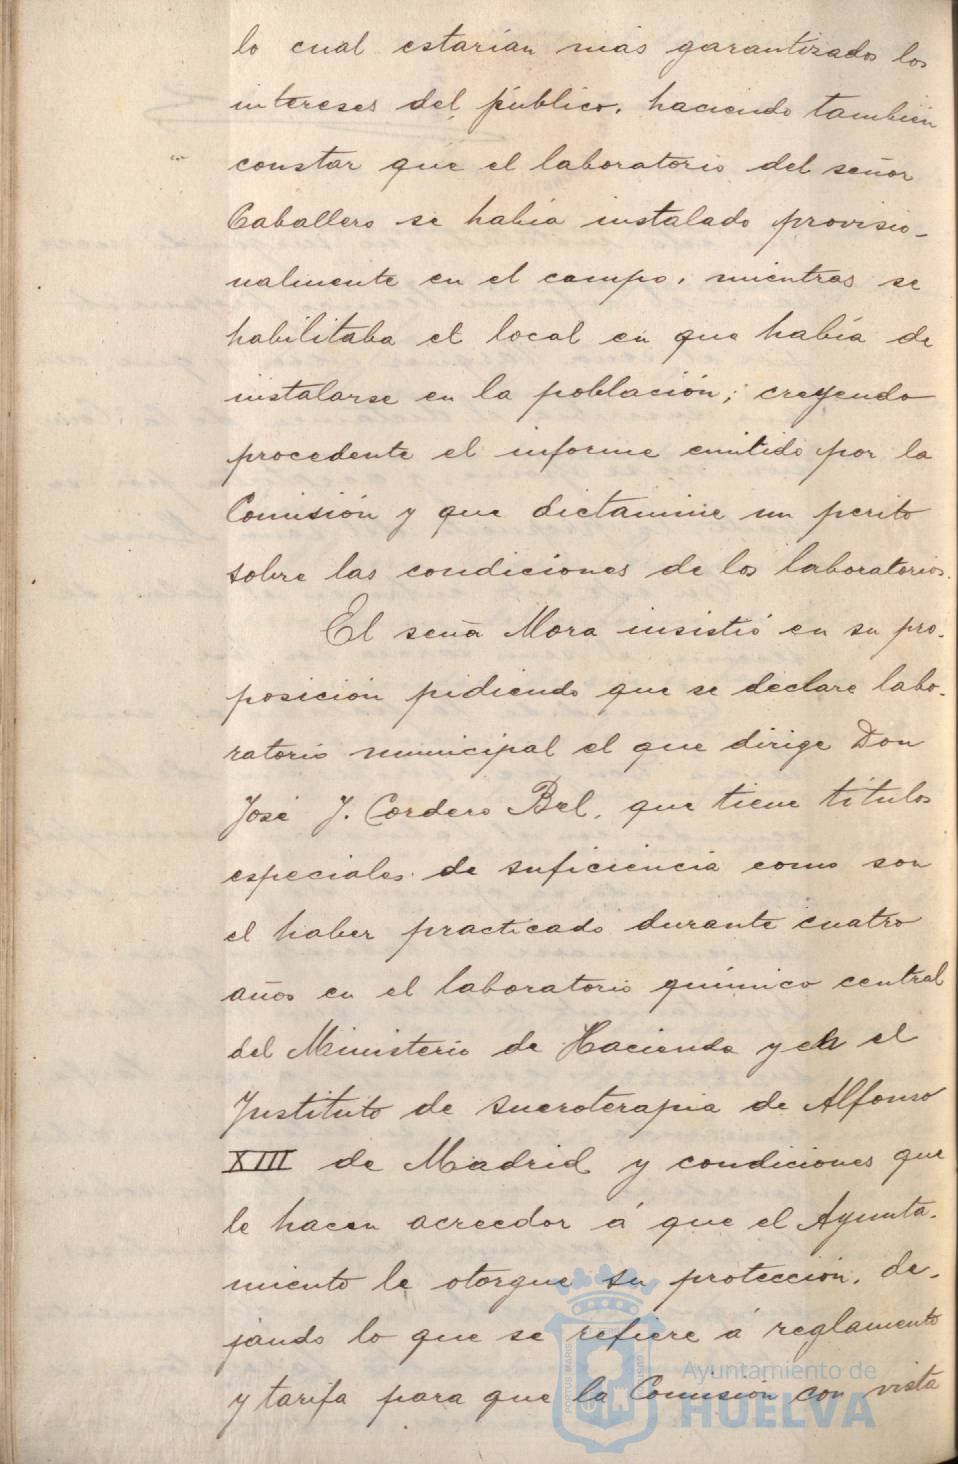 lo cual estarían más garantizados los
intereses del público, haciendo también
constar que el laboratorio del señor
Caballero se había instalado provisio-
nalmente en el campo, mientras se
habilitaba el local en que había de
instalarse en la población; creyendo
procedente el informe emitido por la
Comisión y que dictamine un perito
sobre las condiciones de los laboratorios.
El señor Mora insistió en su pro-
posición pidiendo que se declare labo-
ratorio municipal el que dirige Don
José J. Cordero Bel, que tiene títulos
especiales de suficiencia como son
el haber practicado durante cuatro
años en el laboratorio químico central
del Ministerio de Hacienda y en el
Instituto de sueroterapia de Alfonso
XIII de Madrid y condiciones que
le hacen acreedor á que el Ayunta-
miento le otorgue su protección, de-
jando lo que se refiere á reglamento
y tarifa para que la Comisión con vista
Ayuntamiento de
HUELVA